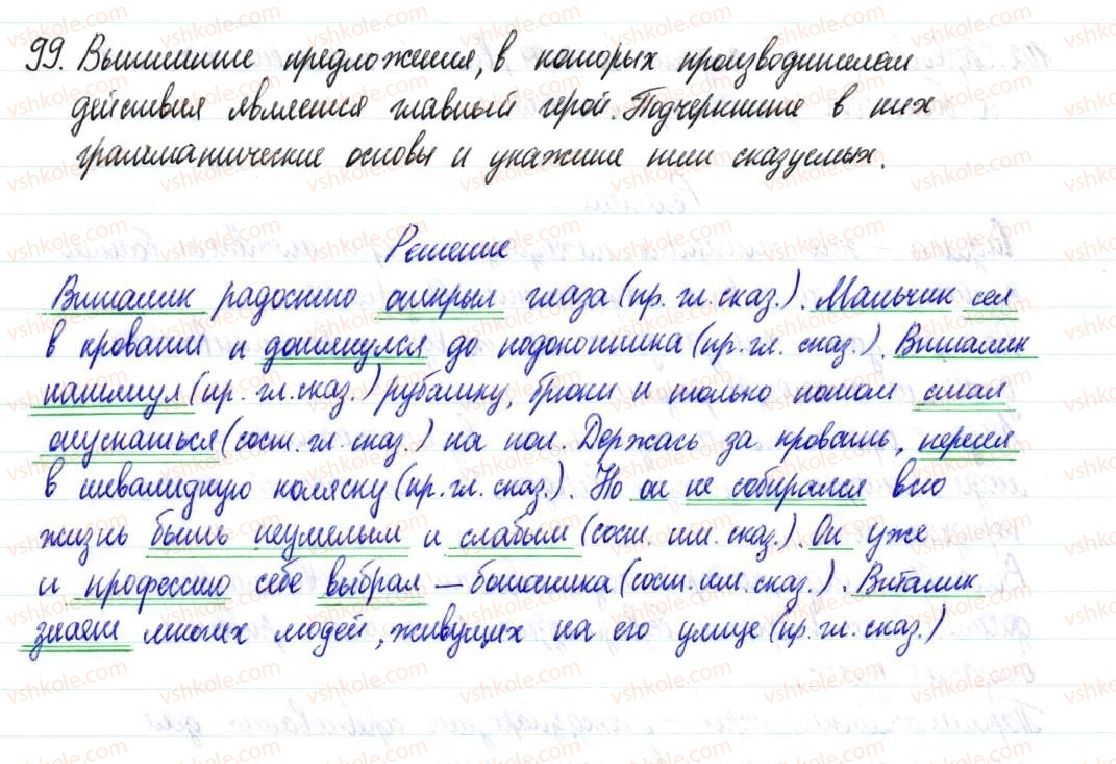 99. Выпишите предложения, в которых производителем
действия является главный герой. Подчеркните в них
грамматические основы и укажите тип сказуемых.
Решение
Виталик радостно открыл глаза (пр. гл. сказ.). Мальчик сел
в кровати и дотянулся до подоконника (пр. гл. сказ.). Виталик
натянул (пр. гл. сказ.) рубашку, брюки и только потом стал
опускаться (сост. гл. сказ.) на пол. Держась за кровать, пересел
в инвалидную коляску (пр. гл. сказ.). Но он не собирался всю
жизнь быть неумелым и слабым (сост. им. сказ.). Он уже
и профессию себе выбрал — ботаника (сост. им. сказ.). Виталик
знает многих людей, живущих на его улице (пр. гл. сказ.)
vshkole.com